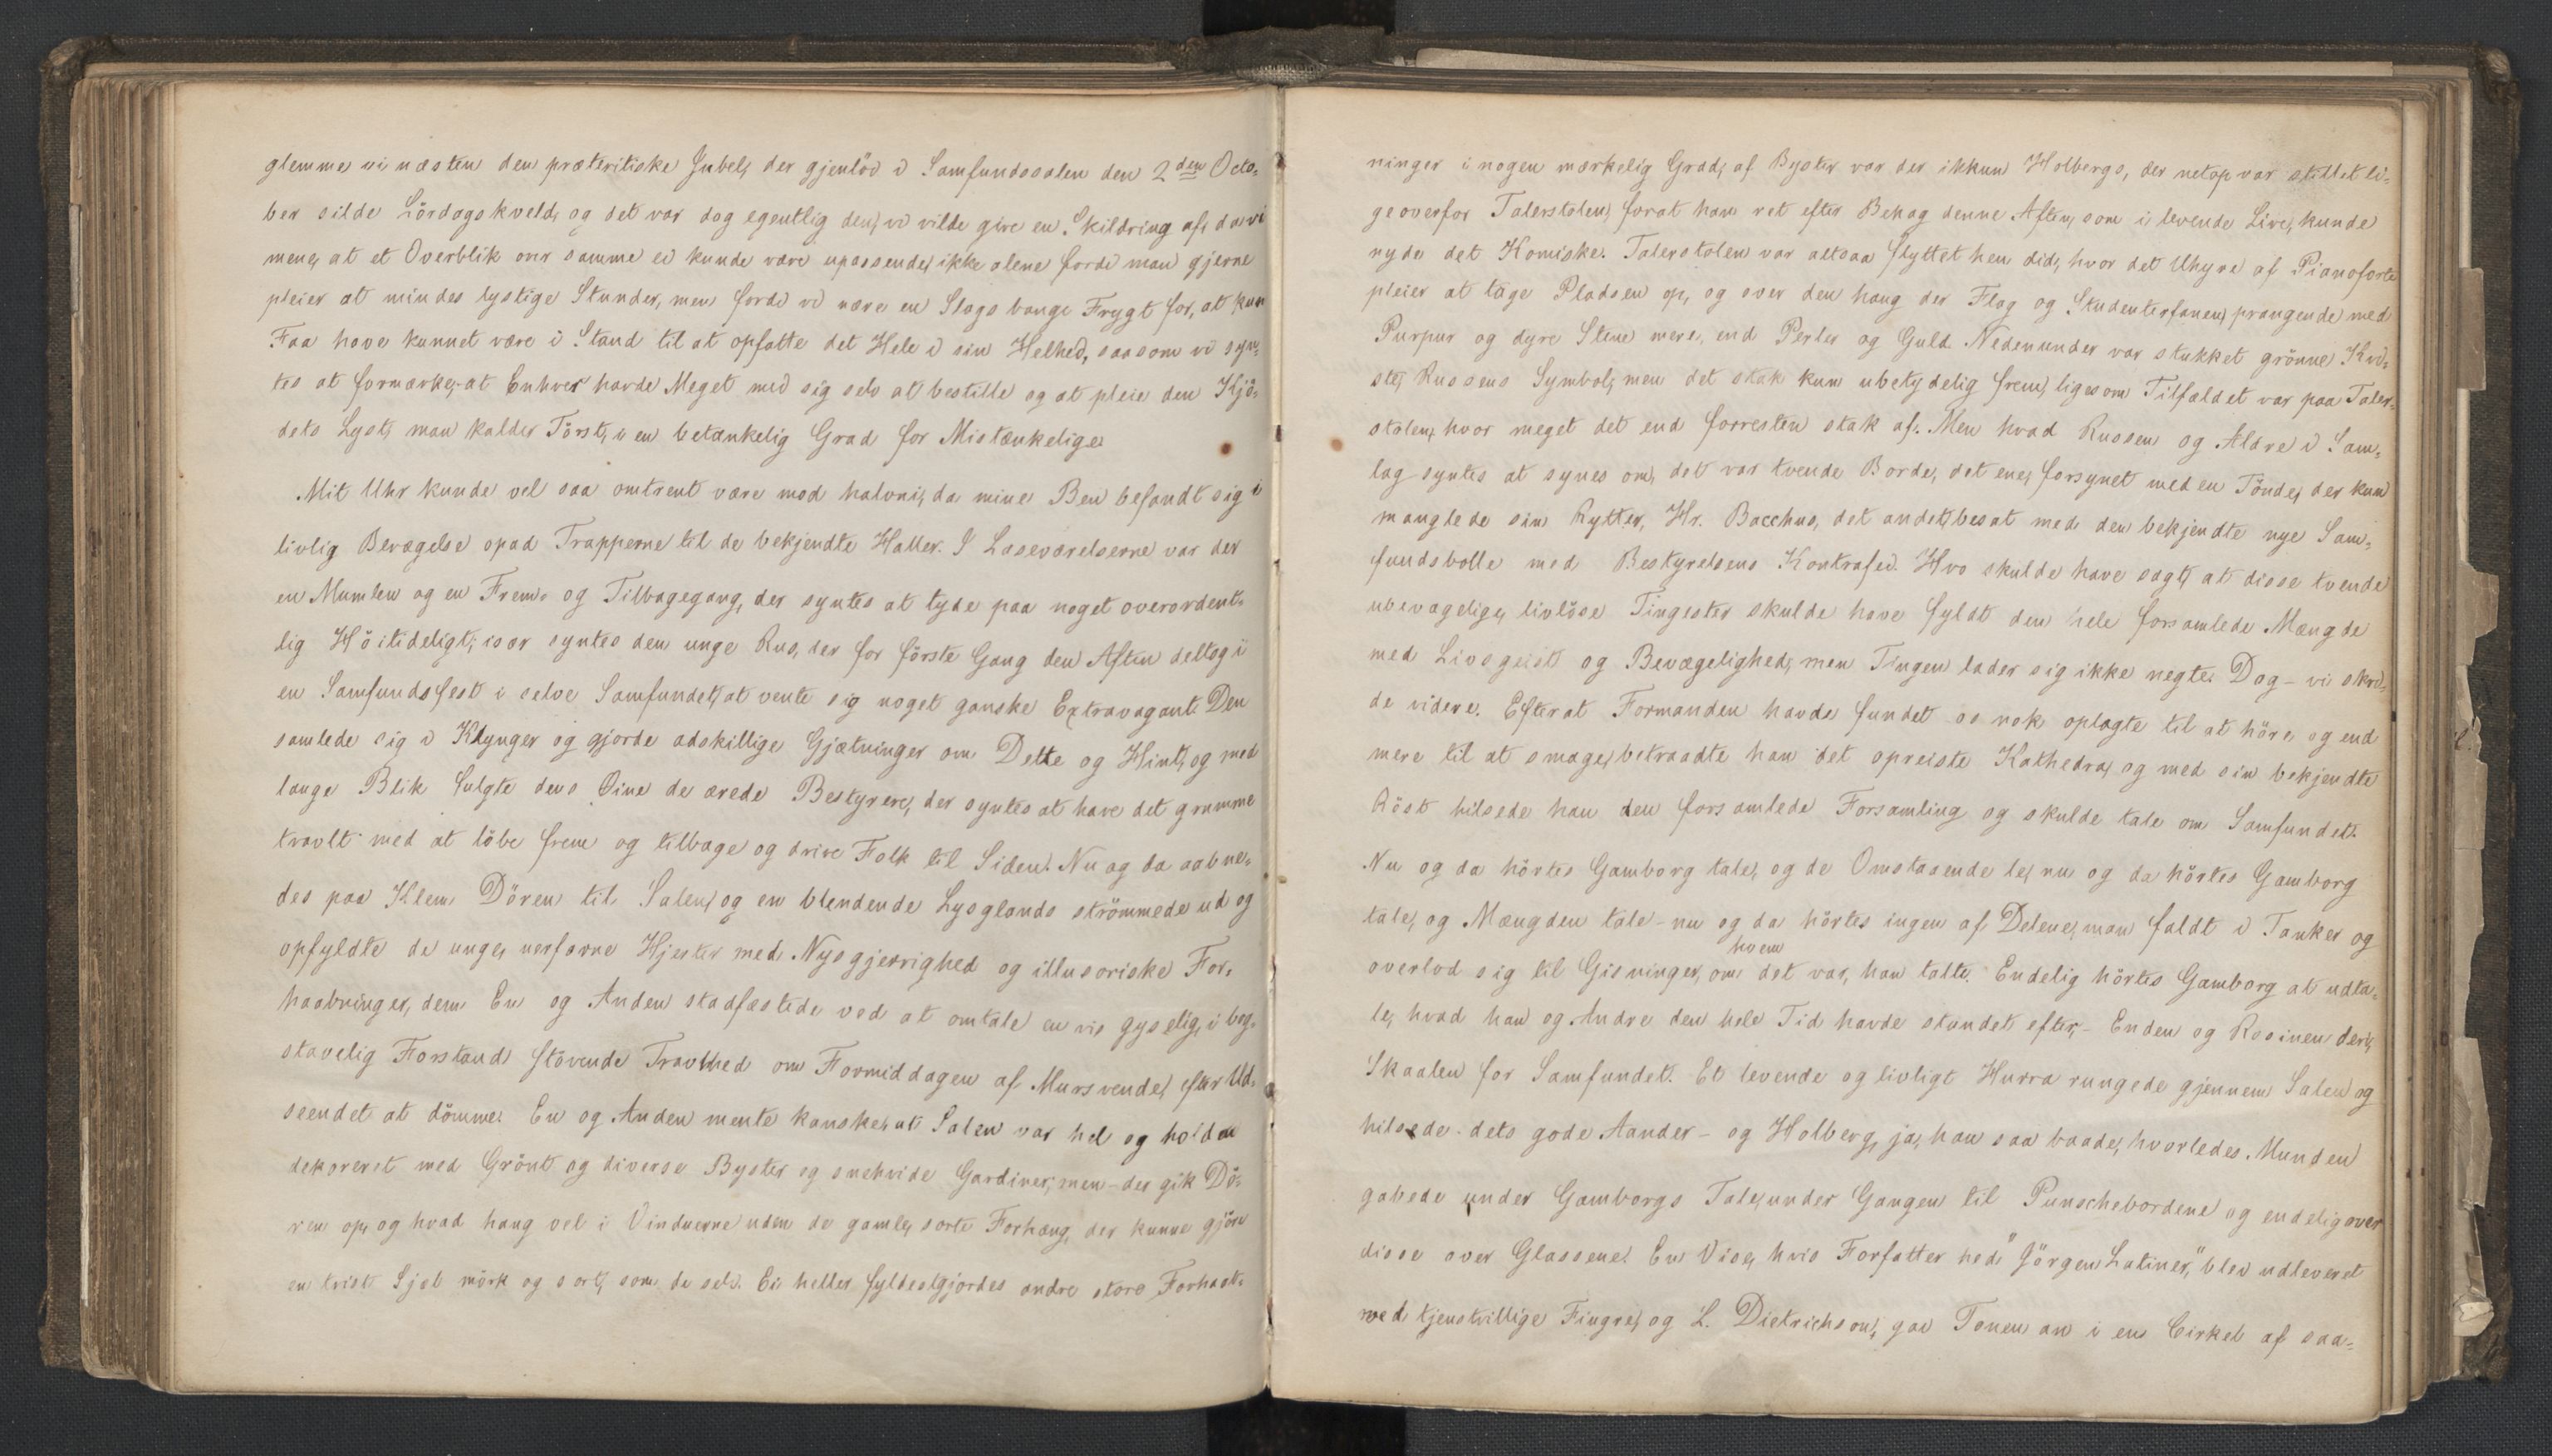 glemme vi næsten den præteritiske Jubel, der gjenlöd i Samfundssalen den 2den Octo-
ber silde Lördagskveld, og det var dog egentlig den, vi vilde give en Skildring af, da vi
mene, at et Overblik over samme ei kunde være upassende, ikke alene fordi man gjerne
pleier at mindes lystige Stunder, men fordi vi nære en Slags bange Frygt for, at kun
Faa have kunnet være i Stand til at opfatte det Hele i sin Helhed, saasom vi syn-
tes at formærke, at Enhver havde Meget med sig selv at bestille og at pleie den Kjö-
dets Lyst, man kalder Törst, i en betænkelig Grad for Mistænkelige.
Mit Uhr kunde vel saa omtrent være mod halvni, da mine Ben befandt sig i
livlig Bevægelse opad Trapperne til de bekjendte Haller. I Læseværelserne var der
en Mumlen og en Frem- og Tilbagegang, der syntes at tyde paa noget overordent-
lig Höitideligt; især syntes den unge Rus, der for förste Gang den Aften deltog i
en Samfundsfest i selve Samfundet, at vente sig noget ganske Extravagant. Den
samlede sig i Klynger og gjorde adskillige Gjætninger om Dette og Hint, og med
lange Blik fulgte dens Øine de ærede Bestyrere, der syntes at have det grumme
travlt med at löbe frem og tilbage og drive Folk til Siden. Nu og da aabne-
des paa Klem Dören til Salen, og en blendende Lysglands strömmede ud og
opfyldte de unge, uerfarne Hjerter med Nysgjerrighed og illusoriske For-
haabninger, dem En og Anden stadfæstede ved at omtale en vis gyselig, i bog-
stavelig Forstand støvende Travlhed om Formiddagen af Mursvende, efter Ud-
seendet at dömme. En og Anden mente kanske, at Salen var hel og holden
dekoreret med Grönt og diverse Byster og snehvide Gardiner; men – der gik Dö-
ren op, og hvad hang vel i Vinduerne uden de gamle, sorte Forhæng, der kunne gjöre
en trist Sjæl mörk og sort, som de selv. Ei heller fyldestgjordes andre store Forhaab-
ninger i nogen mærkelig Grad, af Byster var der ikkun Holbergs, der netop var stillet li-
geoverfor Talerstolen, forat han ret efter Behag denne Aften, som i levende Live, kunde
nyde det Komiske. Talerstolen var altsaa flyttet hen did, hvor det Uhyre af Pianoforte
pleier at tage Pladsen op, og over den hang der Flag og Studenterfanen, prangende med
Purpur og dyre Stene mere, end Perler og Guld. Nedenunder var stukket grönne Kvi-
ste, Russens Symbol, men det stak kun ubetydelig frem, ligesom Tilfældet var paa Taler-
stolen, hvor meget det end forresten stak af. Men hvad Russen og Ældre i Sam-
lag syntes at synes om, det var tvende Borde, det ene, forsynet med en Tönde, der kun
manglede sin Rytter, Hr. Bacchus, det andet, besat med den bekjendte nye Sam-
fundsbolle med Bestyrelsens Kontrafei. Hvo skulde have sagt, at disse tvende
ubevægelige, livlöse Tingester skulde have fyldt den hele forsamlede Mængde
med Livsgeist og Bevægelighed, men Tingen lader sig ikke negte. Dog – vi skri-
de videre. Efterat Formanden havde fundet os nok oplagte til at höre, og end
mere til at smage, betraadte han det opreiste Kathedra, og med sin bekjendte
Röst hilsede han den forsamlede Forsamling og skulde tale om Samfundet.
Nu og da hörtes Gamborg tale, og de Omstaaende le, nu og da hörtes Gamborg
tale, og Mængden tale – nu og da hörtes ingen af Delene, man faldt i Tanker og
overlod sig til Gisninger, om hvem det var, han talte. Endelig hörtes Gamborg at udta-
le, hvad han og Andre den hele Tid havde stundet efter, – Enden og Rosinen deri,
Skaalen for Samfundet. Et levende og livligt Hurra rungede gjennem Salen og
hilsede dets gode Aander – og Holberg, ja, han saa baade, hvorledes Munden
gabede under Gamborgs Tale, under Gangen til Punschebordene og endelig over
disse over Glassene. En Vise, hvis Forfatter hed "Jörgen Latiner," blev udleveret
med tjenstvillige Fingre, og L. Dietrichson gav Tonen an i en Cirkel af saa-